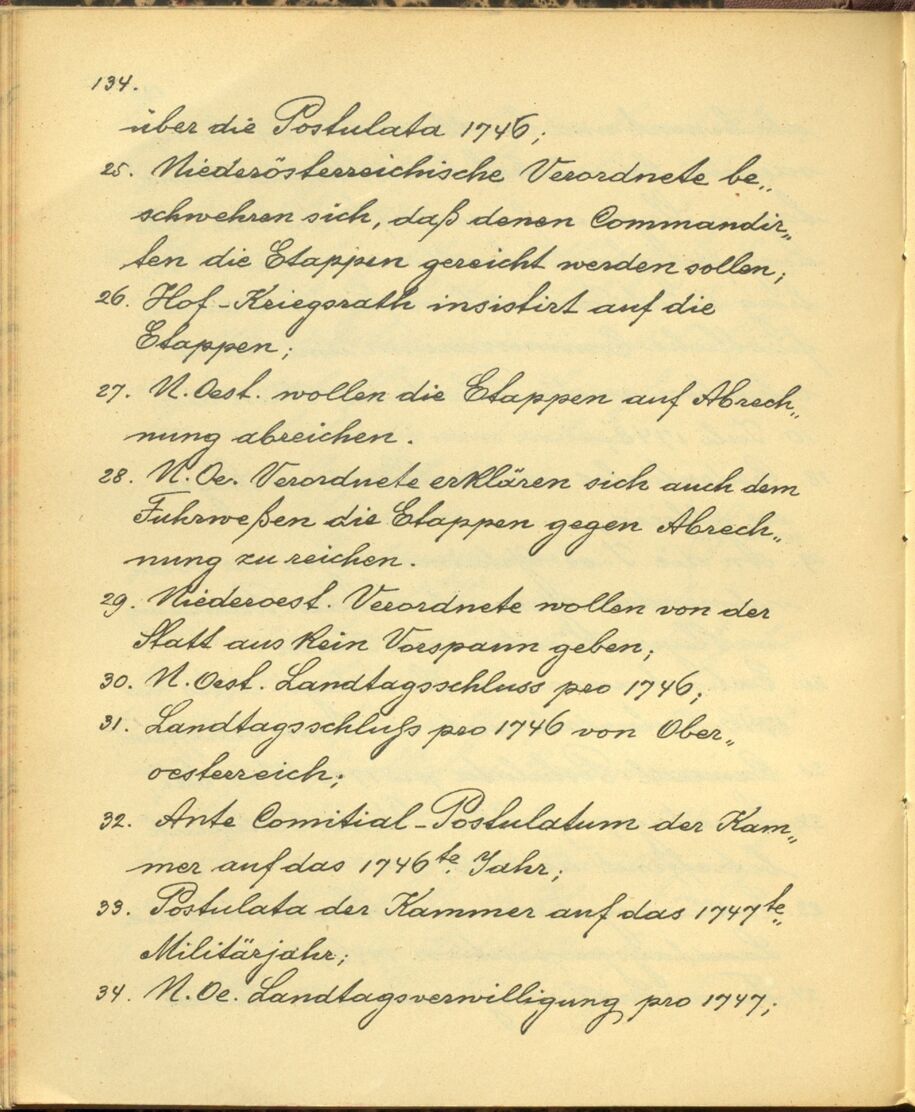 134.
über die Postulata 1746;
25. Niederösterreichische Verordnete be„
schwehren sich, daß denen Commandir„
ten die Etappen gereicht werden sollen;
26. Hof-Kriegsrath insistirt auf die
Etappen;
27. N. Oest. wollen die Etappen auf Abrech„
nung abreichen.
28. N. Oe. Verordnete erklären sich auch dem
Fuhrweßen die Etappen gegen Abrech„
nung zu reichen.
29. Niederoest. Verordnete wollen von der
Statt aus kein Vorspann geben;
30. N. Oest. Landtagsschluss pro 1746;
31. Landtagsschluß pro 1746 von Ober„
oesterreich;
32. Ante Comitial-Postulatum der Kam„
mer auf das 1746te Jahr;
33. Postulata der Kammer auf das 1747te
Militärjahr;
34. N. Oe. Landtagsverwilligung pro 1747;